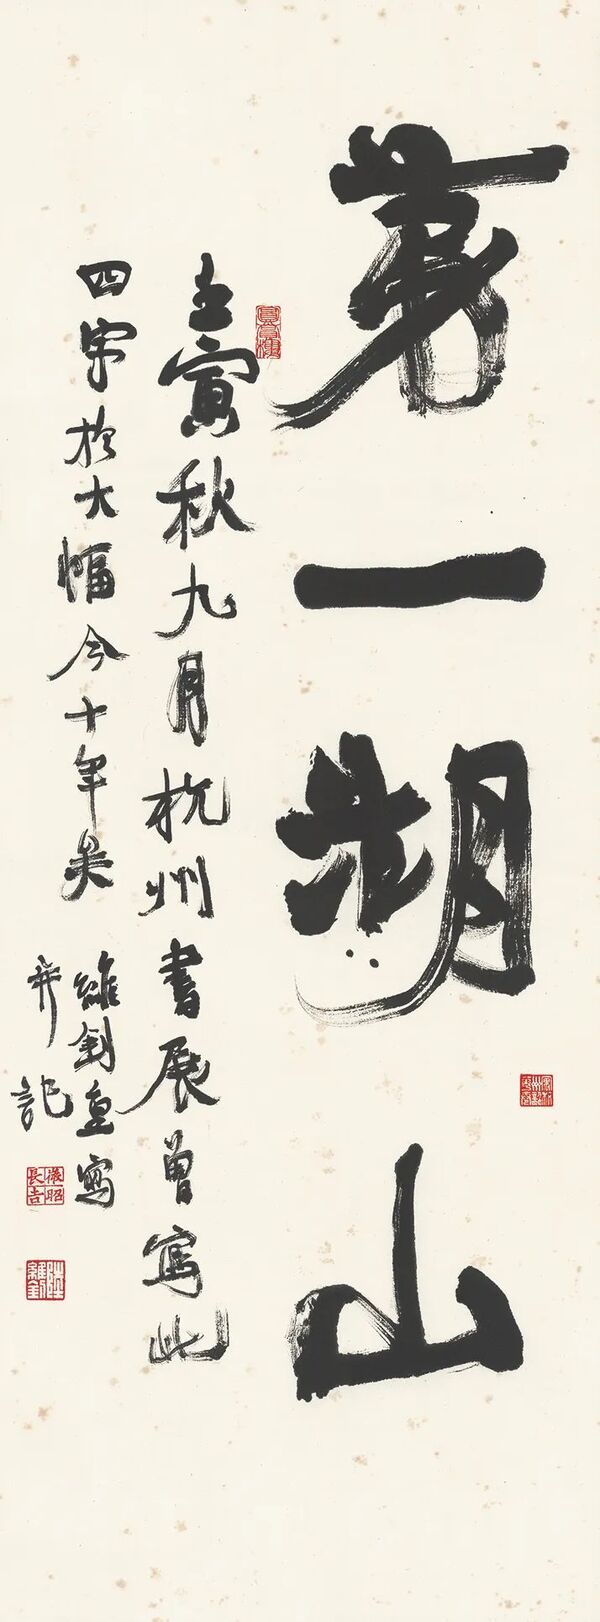 第一湖山
壬寅秋九月杭州書展曾寫此
四字於大幅今十年矣
維釗重寫
并記
陸維釗